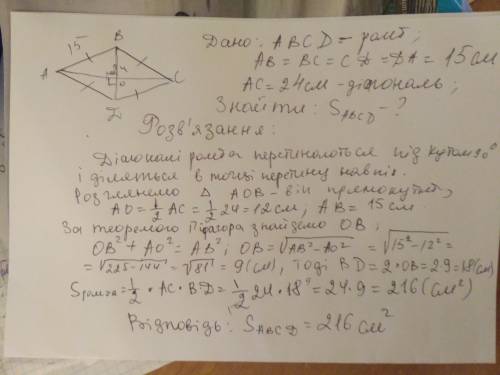 Дано: ABCD – ромб;
AB = BC = CD = DA = 15 см
AC = 24 см – діагональ;
Знайти: S ABCD – ?
B
15
A
C
O
D
Розв'язання:
Діагоналі ромба перетинаються під кутом 90°
і діляться в точці перетину навпіл.
Розглянемо Δ AOB – він прямокутний,
AO = 1/2 AC = 1/2 24 = 12 см, AB = 15 см
За теоремою Піфагора знайдемо OB:
OB² + AO² = AB²; OB = √AB² - AO² = √15² - 12² =
= √225 - 144 = √81 = 9 (см), тоді BD = 2·OB = 2·9 = 18 (см)
Sромба = 1/2 · AC · BD = 1/2 24 · 18 = 24·9 = 216 (см²)
Відповідь: S ABCD = 216 см²